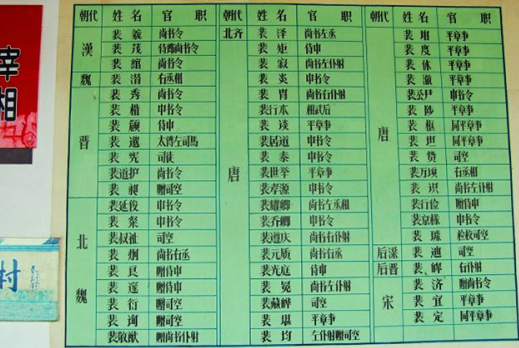 宰相
村
朝代 姓名 官职
漢
裴羲 尚书令
裴茂 侍郎尚书令
裴绾 尚书令
魏
裴潜 右丞相
晋
裴秀 尚书令
裴楷 中书令
裴頠 侍中
裴邈 太晉左司馬
裴宪 司徒
裴道护 尚书令
裴昶 赠司空
北魏
裴延俊 中书令
裴粲 中书令
裴叔祉 司空
裴炯 尚书右丞
裴良 赠侍中
裴邃 赠侍中
裴衍 赠司空
裴询 赠司空
裴敬猷 赠尚书仆射
朝代 姓名 官职
北齐
裴泽 尚书左丞
唐
裴矩 侍中
裴寂 尚书左丞
裴炎 中书令
裴胄 尚书右仆射
裴行本 相武后
裴谈 平章事
裴居道 中书令
裴泰 中书令
裴世举 平章事
裴孝源 中书令
裴耀卿 尚书左丞相
裴乔卿 中书令
裴道庆 尚书右仆射
裴元质 尚书右丞
裴光庭 侍中
裴冕 尚书左仆射
裴藏晔 司空
裴堪 平章事
裴均 左仆射赠司空
朝代 姓名 官职
唐
裴垍 平章事
裴度 平章事
裴休 平章事
裴澈 平章事
裴坦 同平章事
裴贽 司空
裴万顷 右丞相
裴识 尚书左仆射
裴行俭 赠侍中
裴璩 检校司空
后漢
裴迪 司空
后晋
裴皞 右仆射
宋
裴济 赠尚书令
裴宜 平章事
裴定 同平章事